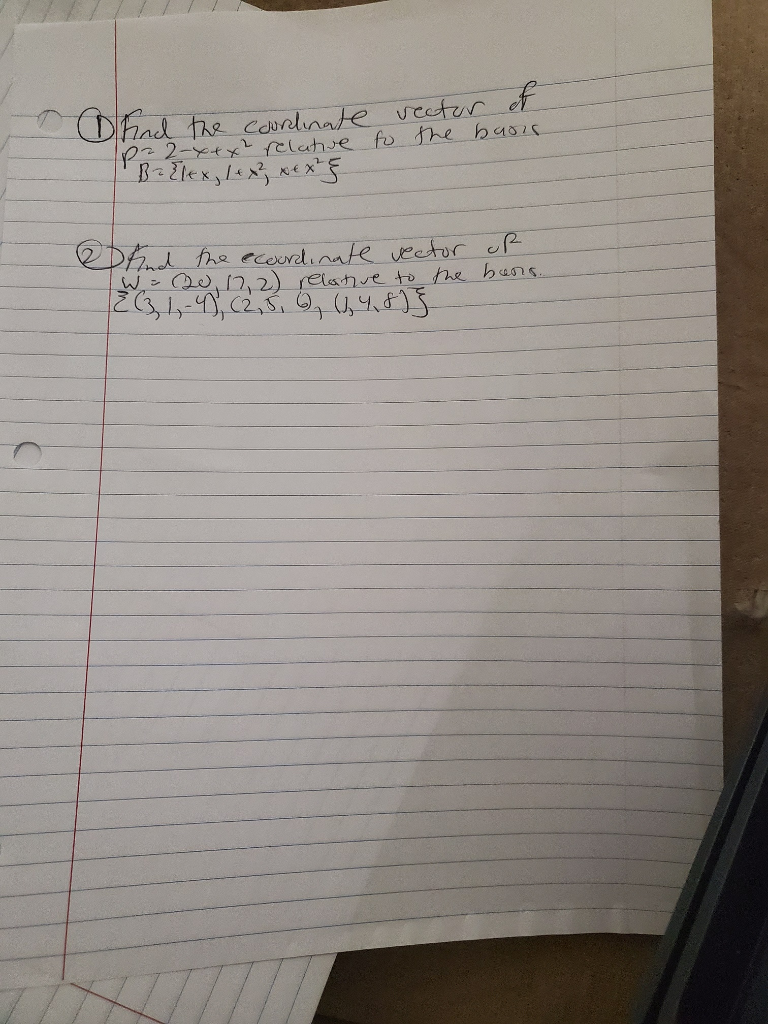 ① Find the coordinate vector of
p = 2-x+x² relative to the basis
B = {1+x, 1+x², x+x²}
② Find the ecoordinate vector of
W = (20, 17, 2) relative to the basis.
{(3, 1, -4), (2, 5, 6), (1, 4, 8)}